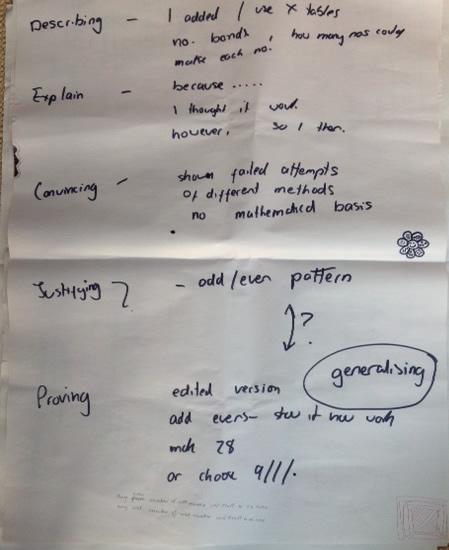 Describing - I added / use x tables
no. bonds, how many nos could
make each no.
Explain - because .....
I thought it would.
however, so I then.
Convincing - shown failed attempts
of different methods
no mathematical basis
Justifying ? - odd/even pattern
?
generalising
Proving edited version
add evens - still it
28
or choose